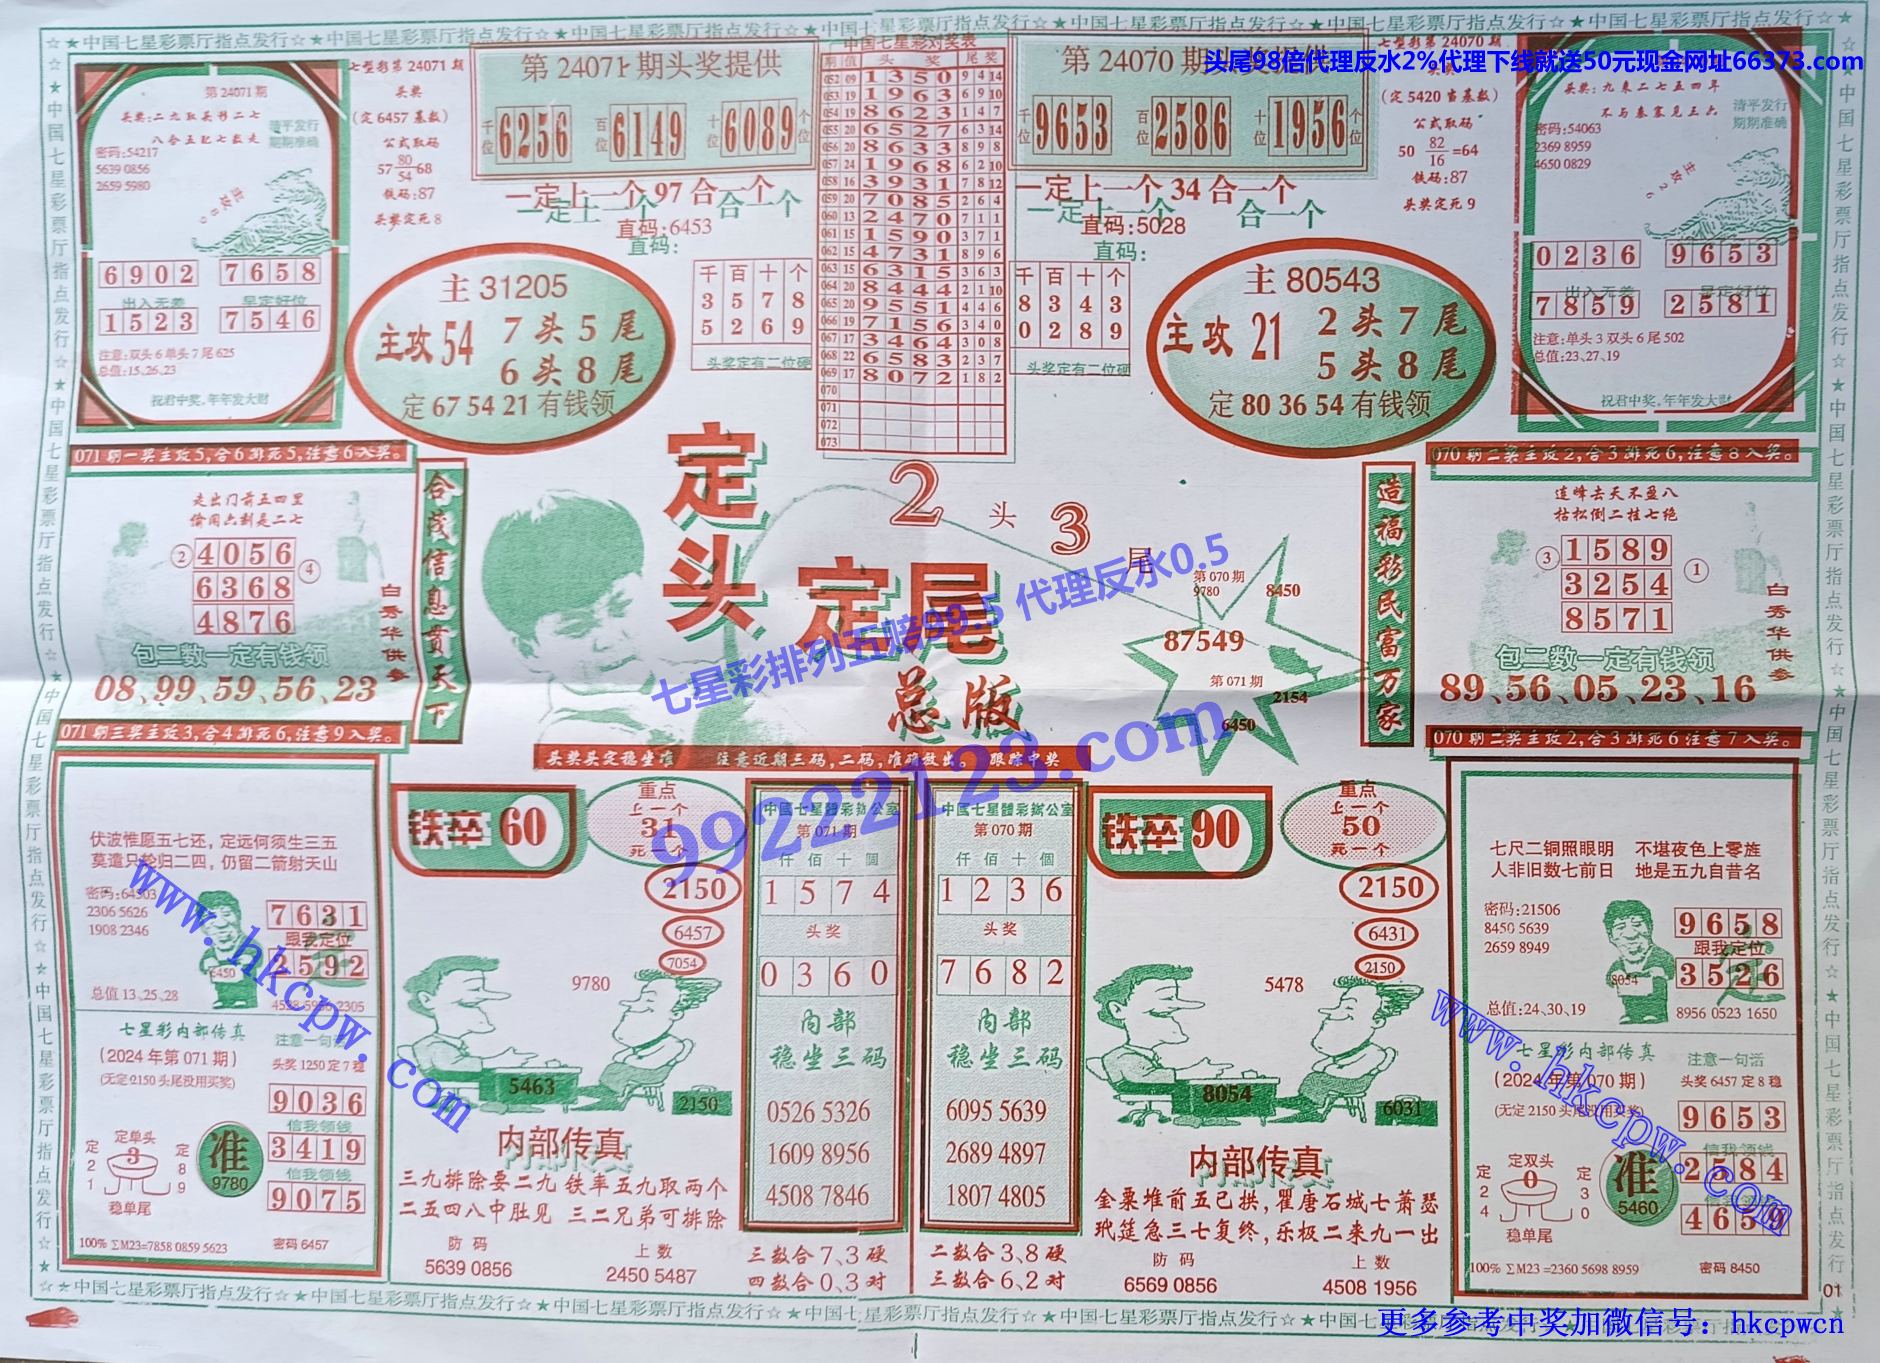 ☆★中国七星彩票厅指点发行☆★中国七星彩票厅指点发行☆★中国七星彩票厅指点发行☆★中国七星彩票厅指点发行☆
头尾98倍代理反水2%代理下线就送50元现金网址66373.com
第24071期
头奖:二九取头形二七
清平发行
期期准确
密码:54217
5639 0856
2659 5980
6902 7658
出入无差 早定好位
1523 7546
注意:双头6单头7尾625
总值:15,26,23
祝君中奖,年年发大财
七型彩第24071期
头奖
(定6457基数)
公式取码
57 80/54 68
铁码:87
头奖定死8
第24071期头奖提供
千位 6256 百位 6149 十位 6089 个位
一定上一个97合一个
直码:6453
直码:
千百十个
3578
5269
头奖定有二位硬
主31205
主攻54 7头5尾
6头8尾
定67 54 21有钱领
中国七星彩对奖表
期 值 头 奖 尾 奖
052 09 1350 9 4 14
053 19 1963 6 9 10
054 19 8623 1 4 7
055 20 6527 6 3 14
056 20 8633 8 9 8
057 24 1968 6 2 10
058 16 3931 7 8 12
059 20 7085 2 6 4
060 13 2470 7 1 1
061 15 1590 3 7 1
062 15 4731 8 9 6
063 15 6315 3 6 3
064 20 8444 2 1 10
065 20 9551 4 4 6
066 19 7156 3 4 0
067 17 3464 3 0 8
068 22 6583 2 3 7
069 17 8072 1 8 2
070
071
072
073
第24070期头奖提供
千位 9653 百位 2586 十位 1956 个位
一定上一个34合一个
直码:5028
直码:
千百十个
8343
0289
头奖定有二位硬
主80543
主攻21 2头7尾
5头8尾
定80 36 54有钱领
七型彩第24070期
(定5420当基数)
公式取码
50 82/16 =64
铁码:87
头奖定死9
头奖:九来二七五四年
不与秦塞见五六
清平发行
期期准确
密码:54063
2369 8959
4650 0829
0236 9653
出入无差 早定好位
7859 2581
注意:单头3双头6尾502
总值:23,27,19
祝君中奖,年年发大财
071期一奖主攻5,合6排死5,注意6入奖。
走出门前五四里
偷闲六割是二七
② 4056 ④
6368
4876
白秀华供参
包二数一定有钱领
08、99、59、56、23
合茂信息贵天下
定头
定尾
总版
2头3尾
第070期
9780
8450
87549
第071期
2154
6450
七星彩排列五赔99.5 代理反水0.5
99222123.com
造福彩民富万家
070期二奖主攻2,合3排死6,注意8入奖。
连峰去天不盈八
枯松倒二挂七绝
③ 1589 ①
3254
8571
白秀华供参
包二数一定有钱领
89、56、05、23、16
071期三奖主攻3,合4排死6,注意9入奖。
头奖头定稳坐准 注意近期三码,二码,准确放出。 跟踪中奖
070期二奖主攻2,合3排死6注意7入奖。
伏波惟愿五七还,定远何须生三五
莫遣只轮归二四,仍留二箭射天山
密码:64303
2306 5626
1908 2346
7631
跟我定位
2592
6450
总值13、25、28
www.hkcpw.com
七星彩内部传真
(2024年第071期)
(无定2150头尾没用买奖)
头奖1250定7稳
9036
信我领钱
3419
信我领钱
9075
定单头
3
定21
定89
稳单尾
准
9780
100% ∑M23=7858 0859 5623 密码6457
铁卒60
重点
上一个
31
死一个
2150
6457
7054
9780
5463
2150
内部传真
三九排除要二九 铁率五九取两个
二五四八中肚见 三二兄弟可排除
防码 上数
5639 0856 2450 5487
中國七星體彩辦公室
第071期
仟佰十個
1574
头奖
0360
内部
稳坐三码
0526 5326
1609 8956
4508 7846
三数合7、3硬
四数合0、3对
中國七星體彩辦公室
第070期
仟佰十個
1236
头奖
7682
内部
稳坐三码
6095 5639
2689 4897
1807 4805
二数合3、8硬
三数合6、2对
铁卒90
重点
上一个
50
死一个
2150
6431
2150
5478
8054
6031
内部传真
金粟堆前五已拱,瞿唐石城七萧瑟
玳筵急三七复终,乐极二来九一出
防码 上数
6569 0856 4508 1956
七尺二铜照眼明 不堪夜色上零旌
人非旧数七前日 地是五九自昔名
密码:21506
8450 5639
2659 8949
9658
跟我定位
3526
8054
总值:24,30,19
8956 0523 1650
www.hkcpw.com
七星彩内部传真
(2024年第070期)
(无定2150头尾没用买奖)
注意一句话
头奖6457定8稳
9653
信我领钱
2584
4659
定双头
0
定24
定30
稳单尾
准
5460
100% ∑M23=2360 5698 8959 密码8450
01
更多参考中奖加微信号: hkcpwcn